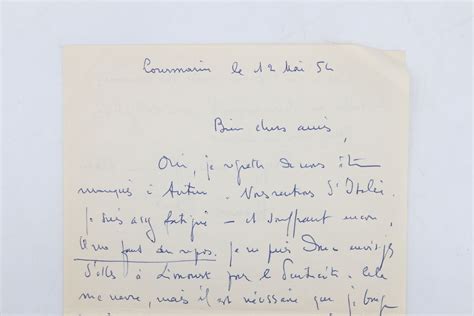 Lourmarin le 12 Mai 54
Bien chers amis,
Oui, je regrette de nous être
manqués à . Nous rentrions d'Italie.
Je suis assez fatigué – et souffrant encore,
il me faut du repos. Je ne puis donc envisager
d'aller à Limours pour la Pentecôte. Cela
me navre, mais il est nécessaire que je